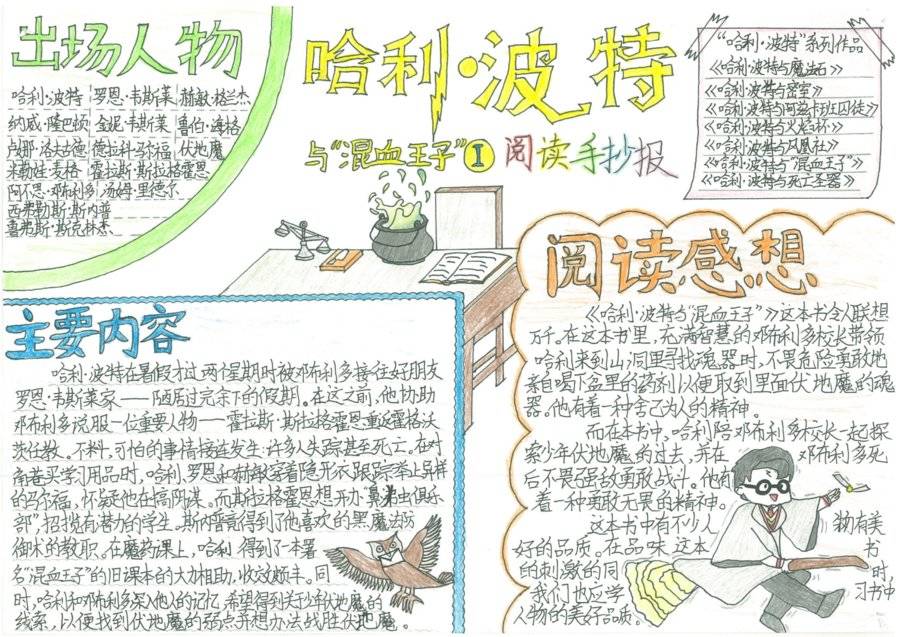 出场人物
哈利·波特 罗恩·韦斯莱 赫敏·格兰杰
纳威·隆巴顿 金妮·韦斯莱 鲁伯·海格
卢娜·洛夫古德 德拉科·马尔福 伏地魔
米勒娃·麦格 霍拉斯·斯拉格霍恩
阿不思·邓布利多 汤姆·里德尔
西弗勒斯·斯内普
鲁弗斯·斯克林杰
哈利·波特
与“混血王子”I 阅读手抄报
“哈利·波特”系列作品
《哈利·波特与魔法石》
《哈利·波特与密室》
《哈利·波特与阿兹卡班囚徒》
《哈利·波特与火焰杯》
《哈利·波特与凤凰社》
《哈利·波特与“混血王子”》
《哈利·波特与死亡圣器》
主要内容
哈利·波特在暑假才过两个星期时被邓布利多接往好朋友
罗恩·韦斯莱家——陋居过完余下的假期。在这之前,他协助
邓布利多说服一位重要人物——霍拉斯·斯拉格霍恩重返霍格沃
茨任教。不料,可怕的事情接连发生:许多人失踪甚至死亡。在对
角巷买学习用品时,哈利、罗恩和赫敏穿着隐形衣跟踪举止异样
的马尔福,怀疑他在搞阴谋。而斯拉格霍恩想开办“鼻弟虫俱乐
部”,招揽有潜力的学生。斯内普竟得到了他喜欢的黑魔法防
御术的教职。在魔药课上,哈利得到了一本署
名“混血王子”的旧课本的大力相助,收效颇丰。同
时,哈利和邓布利多深入他人的记忆,希望得到关于少年伏地魔的
线索,以便找到伏地魔的弱点并想办法战胜伏地魔。
阅读感想
《哈利·波特与“混血王子”》这本书令人联想
万千。在这本书里,充满智慧的邓布利多校长带领
哈利来到山洞里寻找魂器时,不畏危险勇敢地
亲自喝下盆里的药剂以便取到里面伏地魔的魂
器。他有着一种舍己为人的精神。
而在本书中,哈利陪邓布利多校长一起探
索少年伏地魔的过去,并在邓布利多死
后不畏强敌勇敢战斗。他有
着一种勇敢无畏的精神。
这本书中有不少人物有美
好的品质。在品味这本书
的刺激的同时,
我们也应学习书中
人物的美好品质。